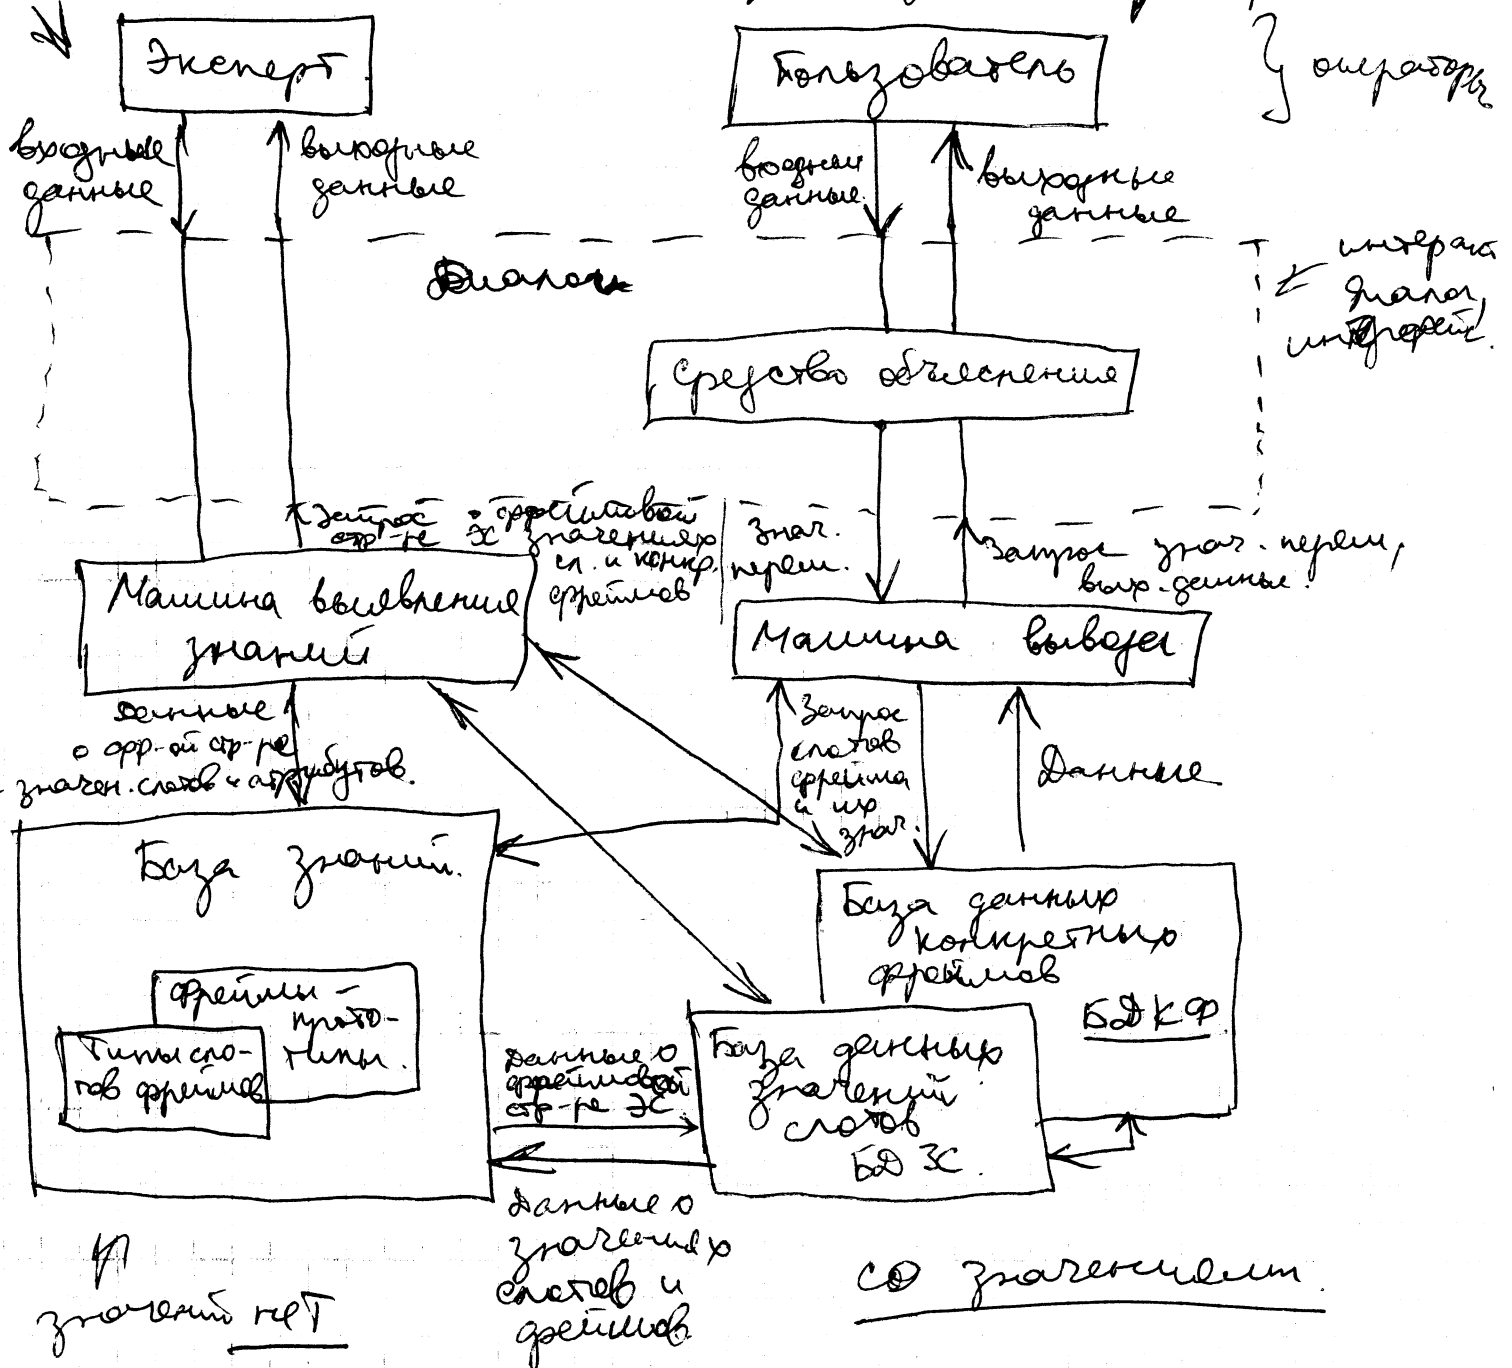 Эксперт
Пользователь
операторы
входные
данные
выходные
данные
входные
данные
выходные
данные
Диалог
интеракт
диалог,
интерфейс.
Средство объяснения
Запрос о фреймовой
стр-ре ЭС значениях
сл. и конкр.
фреймов
Знач.
перем.
Запрос знач. перем,
вых. данные.
Машина выявления
знаний
Машина вывода
Данные
о фр-ой стр-ре
значен. слотов и атрибутов.
Запрос
слотов
фрейма
и их
знач.
Данные
База знаний.
Фреймы -
прото-
типы.
Типы сло-
тов фреймов
База данных
конкретных
фреймов
БДКФ
База данных
значений
слотов
БД ЗС.
Данные о
фреймовой
стр-ре ЭС
Данные о
значениях
слотов и
фреймов
значений нет
со значениями